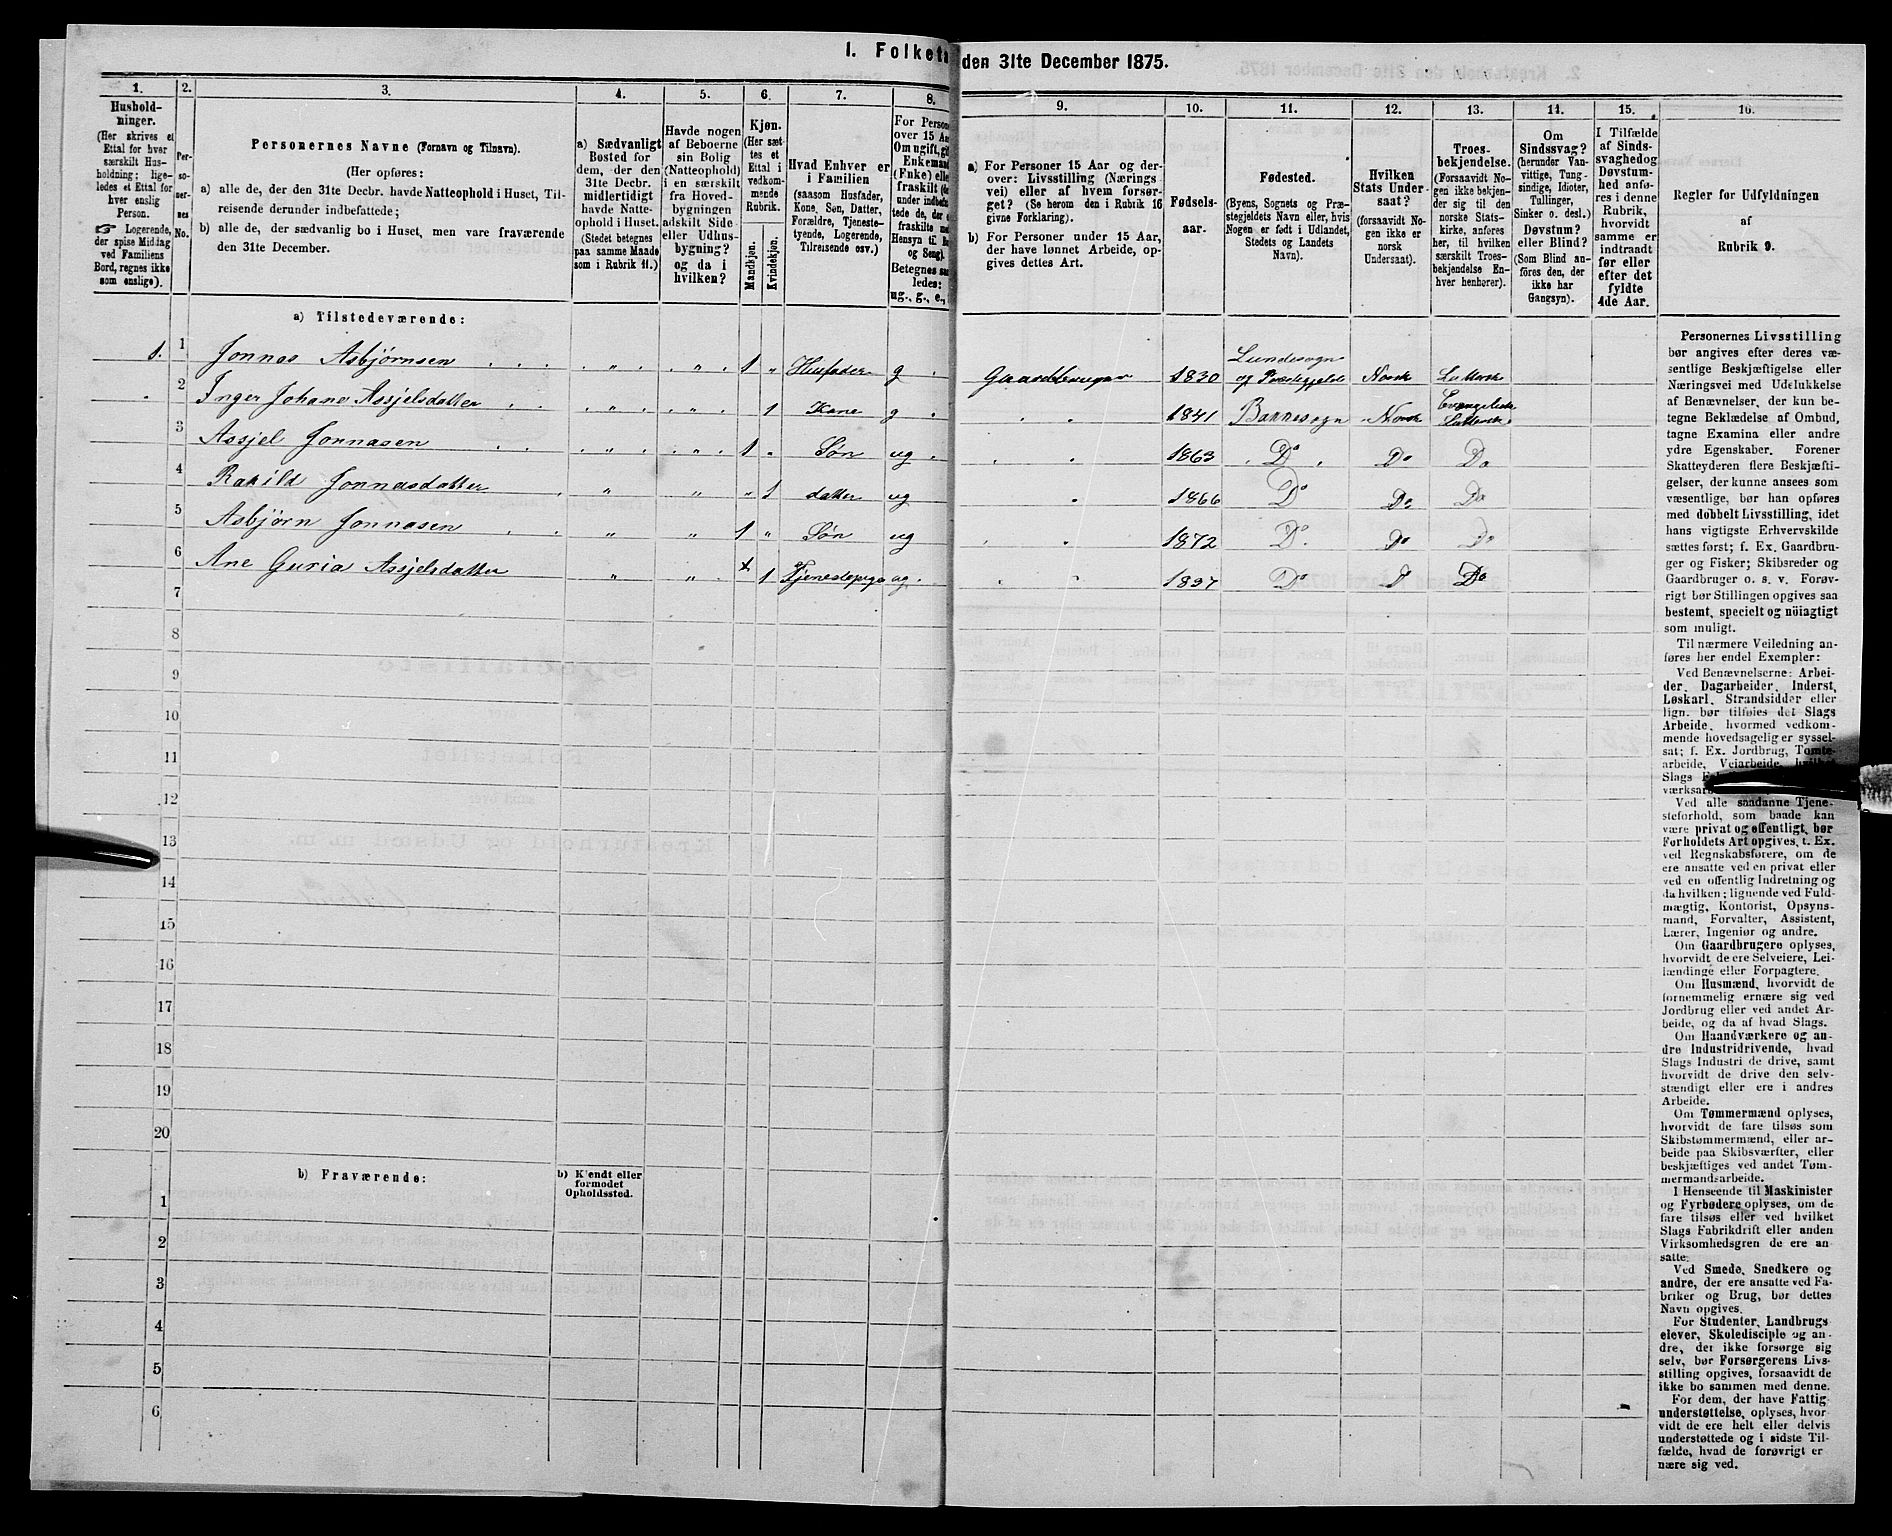 I. Folketa
den 31te December 1875.
1.
Hushold-
ninger.
(Her skrives et
Ettal for hver
særskilt Hus-
holdning; lige-
ledes et Ettal for
hver enslig
Person.
☞ Logerende,
der spise Middag
ved Familiens
Bord, regnes ikke
som enslige).
2.
Per-
so-
ner-
nes
No.
3.
Personernes Navne (Fornavn og Tilnavn).
(Her opføres:
a) alle de, der den 31te Decbr. havde Natteophold i Huset, Til-
reisende derunder indbefattede;
b) alle de, der sædvanlig bo i Huset, men vare fraværende
den 31te December.
4.
a) Sædvanligt
Bosted for
dem, der den
31te Decbr.
midlertidigt
havde Natte-
ophold i Huset.
(Stedet betegnes
paa samme Maade
som i Rubrik 11.)
5.
Havde nogen
af Beboerne
sin Bolig
(Natteophold)
i en særskilt
fra Hoved-
bygningen
adskilt Side-
eller Udhus-
bygning?
og da i
hvilken?
6.
Kjøn.
(Her sæt-
tes et
Ettal i
vedkom-
mende
Rubrik.
Mandkjøn.
Kvindekjøn.
7.
Hvad Enhver er
i Familien
(saasom Husfader,
Kone, Søn, Datter,
Forældre, Tjeneste-
tyende, Logerende,
Tilreisende osv.)
8.
For Person
over 15 Aa
Om ugift, gif
Enkemand
(Enke) elle
fraskilt (de
under indbefat-
tede de, der e
fraskilte me
Hensyn til Bo
og Seng).
Betegnes saa
ledes:
ug., g., e.,
9.
a) For Personer 15 Aar og der-
over: Livsstilling (Nærings-
vei) eller af hvem forsør-
get? (Se herom den i Rubrik 16
givne Forklaring).
b) For Personer under 15 Aar,
der have lønnet Arbeide, op-
gives dettes Art.
10.
Fødsels-
aar.
11.
Fødested.
(Byens, Sognets og Præ-
stegjeldets Navn eller, hvis
Nogen er født i Udlandet,
Stedets og Landets
Navn).
12.
Hvilken
Stats Under-
saat?
(forsaavidt No-
gen ikke er
norsk
Undersaat).
13.
Troes-
bekjendelse.
(Forsaavidt No-
gen ikke bekjen-
der sig til den
norske Stats-
kirke, anføres
her, til hvilken
særskilt Troes-
bekjendelse En-
hver henhører).
14.
Om
Sindssvag?
(herunder Van-
vittige, Tung-
sindige, Idioter,
Tullinger,
Sinker o. desl.)
Døvstum?
eller Blind?
(Som Blind an-
føres den, der
ikke har
Gangsyn).
15.
I Tilfælde
af Sinds-
svaghed og
Døvstum-
hed anfø-
res i denne
Rubrik,
hvorvidt
samme er
indtraadt
før eller
efter det
fyldte
4de Aar.
16.
Regler for Udfyldningen
af
Rubrik 9.
a) Tilstedeværende:
1. 1 Jonnas Asbjørnsen „ „ 1 „ Husfader g Gaardbruger 1830 Lundesogn og Præstegjelde Norsk Luttersk
2 Inger Johane Assjelsdatter „ „ 1 Kone g „ „ 1841 Bakkesogn Norsk Evangelisk Luttersk
3 Assjel Jonnasen „ „ 1 „ Søn ug „ „ 1863 Do Do Do
4 Rakild Jonnasdatter „ „ „ 1 datter ug „ 1866 Do Do Do
5 Asbjørn Jonnasen „ „ 1 „ Søn ug „ „ 1872 Do Do Do
6 Ane Guria Assjelsdatter „ „ 1 Tjenestepige ug „ „ 1837 Do Do Do
7
8
9
10
11
12
13
14
15
16
17
18
19
20
b) Fraværende:
b) Kjendt eller
formodet
Opholdssted.
1
2
3
4
5
6
Personernes Livsstilling
bør angives efter deres væ-
sentlige Beskjæftigelse eller
Næringsvei med Udelukkelse
af Benævnelser, der kun be-
tegne Beklædelse af Ombud,
tagne Examina eller andre
ydre Egenskaber. Forener
Skatteyderen flere Beskjæfti-
gelser, der kunne ansees som
væsentlige, bør han opføres
med dobbelt Livsstilling, idet
hans vigtigste Erhvervskilde
sættes først; f. Ex. Gaardbru-
ger og Fisker; Skibsreder og
Gaardbruger o. s. v. Forøv-
rigt bør Stillingen opgives saa
bestemt, specielt og nöiagtigt
som muligt.
Til nærmere Veiledning an-
føres her endel Exempler:
Ved Benævnelserne: Arbei-
der, Dagarbeider, Inderst,
Løskarl, Strandsidder eller
lign. bør tilføies det Slags
Arbeide, hvormed vedkom-
mende hovedsagelig er syssel-
sat; f. Ex. Jordbrug, Tomte-
arbeide, Veiarbeide, hvilket
Slags
værksar
Ved alle saadanne Tjene-
steforhold, som baade kan
være privat og offentligt, bør
Forholdets Art opgives, t. Ex.
ved Regnskabsførere, om de
ere ansatte ved en privat eller
ved en offentlig Indretning og
da hvilken; lignende ved Fuld-
mægtig, Kontorist, Opsyns-
mand, Forvalter, Assistent,
Lærer, Ingeniør og andre.
Om Gaardbrugere oplyses,
hvorvidt de ere Selveiere, Lei-
lændinge eller Forpagtere.
Om Husmænd, hvorvidt de
fornemmelig ernære sig ved
Jordbrug eller ved andet Ar-
beide, og da af hvad Slags.
Om Haandværkere og an-
dre Industridrivende, hvad
Slags Industri de drive, samt
hvorvidt de drive den selv-
stændigt eller ere i andres
Arbeide.
Om Tømmermænd oplyses,
hvorvidt de fare tilsøs som
Skibstømmermænd, eller ar-
beide paa Skibsværfter, eller
beskjæftiges ved andet Tøm-
mermandsarbeide.
I Henseende til Maskinister
og Fyrbødere oplyses, om de
fare tilsøs eller ved hvilket
Slags Fabrikdrift eller anden
Virksomhedsgren de ere an-
satte.
Ved Smede, Snedkere og
andre, der ere ansatte ved Fa-
briker og Brug, bør dettes
Navn opgives.
For Studenter, Landbrugs-
elever, Skoledisciple og an-
dre, der ikke forsørge sig
selv, bør Forsørgerens Livs-
stilling opgives, forsaavidt de
ikke bo sammen med denne.
For dem, der have Fattig-
understøttelse, oplyses, hvor-
vidt de ere helt eller delvis
understøttede og i sidste Til-
fælde, hvad de forøvrigt er-
nære sig ved.